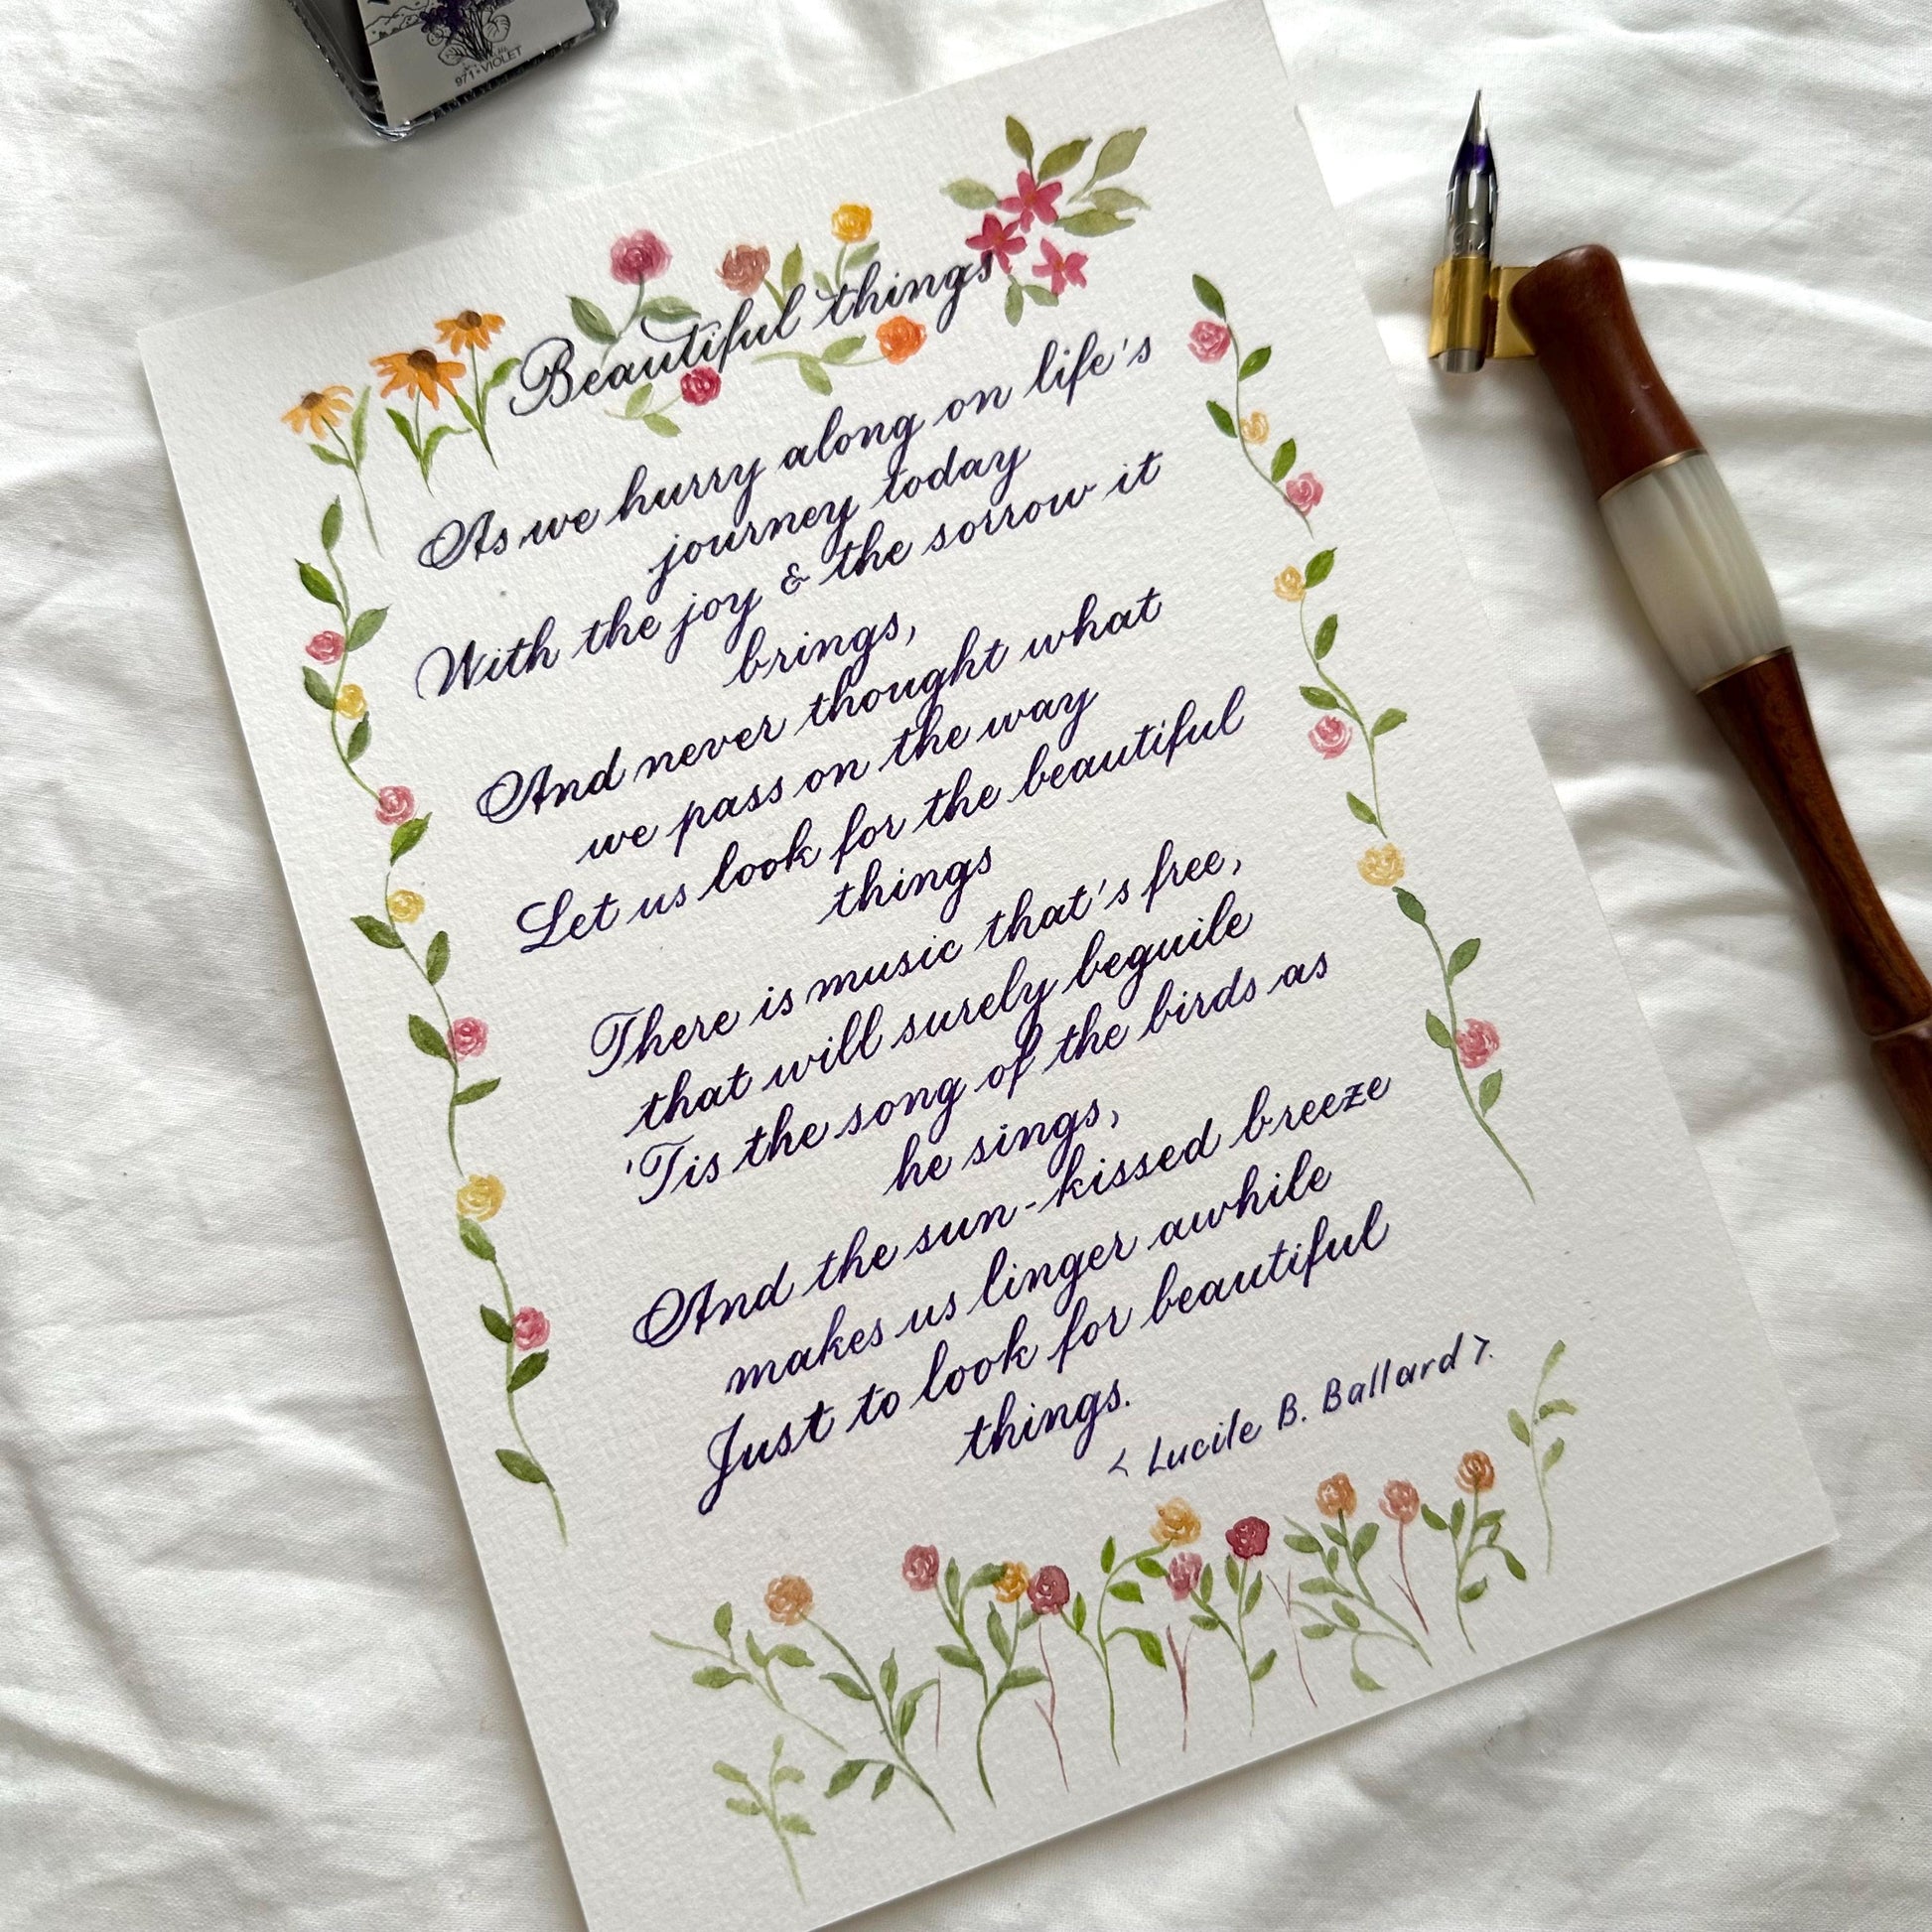 971 · VIOLET
Beautiful things
As we hurry along on life's
journey today
With the joy & the sorrow it
brings,
And never thought what
we pass on the way
Let us look for the beautiful
things
There is music that's free,
that will surely beguile
'Tis the song of the birds as
he sings,
And the sun-kissed breeze
makes us linger awhile
Just to look for beautiful
things.
< Lucile B. Ballard >.